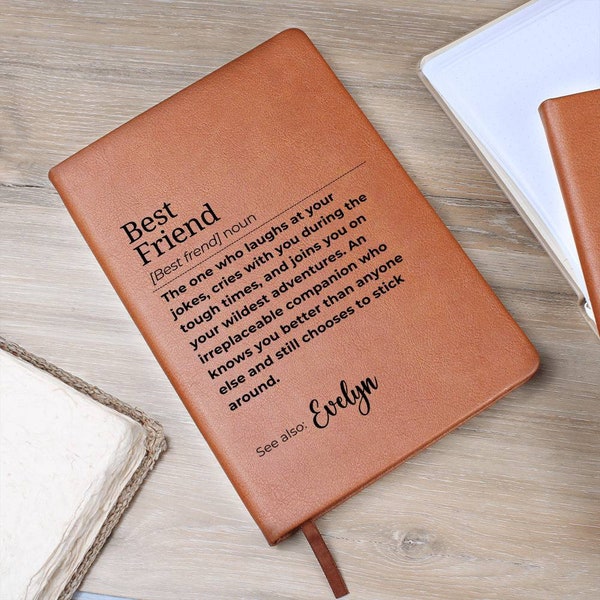 Best
Friend
[Best frend] noun
The one who laughs at your
jokes, cries with you during the
tough times, and joins you on
your wildest adventures. An
irreplaceable companion who
knows you better than anyone
else and still chooses to stick
around.
See also: Evelyn